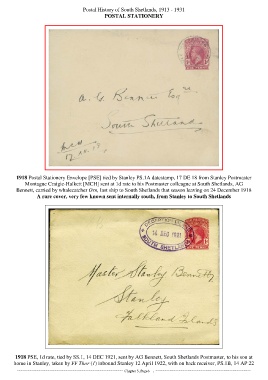 Postal History of South Shetlands, 1913 - 1931
POSTAL STATIONERY
A. G. Bennie Esqre
South Shetlands
1918 Postal Stationery Envelope [PSE] tied by Stanley PS.1A datestamp, 17 DE 18 from Stanley Postmaster
Montague Craigie-Halkett [MCH] sent at 1d rate to his Postmaster colleague at South Shetlands, AG
Bennett, carried by whalecatcher Orn, last ship to South Shetlands that season leaving on 24 December 1918
A rare cover, very few known sent internally south, from Stanley to South Shetlands
14 DEC 1921
SOUTH SHETLANDS
Master Stanley Bennett
Stanley
Falkland Islands
1918 PSE, 1d rate, tied by SS.1, 14 DEC 1921, sent by AG Bennett, South Shetlands Postmaster, to his son at
home in Stanley, taken by FF Thor (1) inbound Stanley 12 April 1922, with on back receiver, PS.1B, 14 AP 22